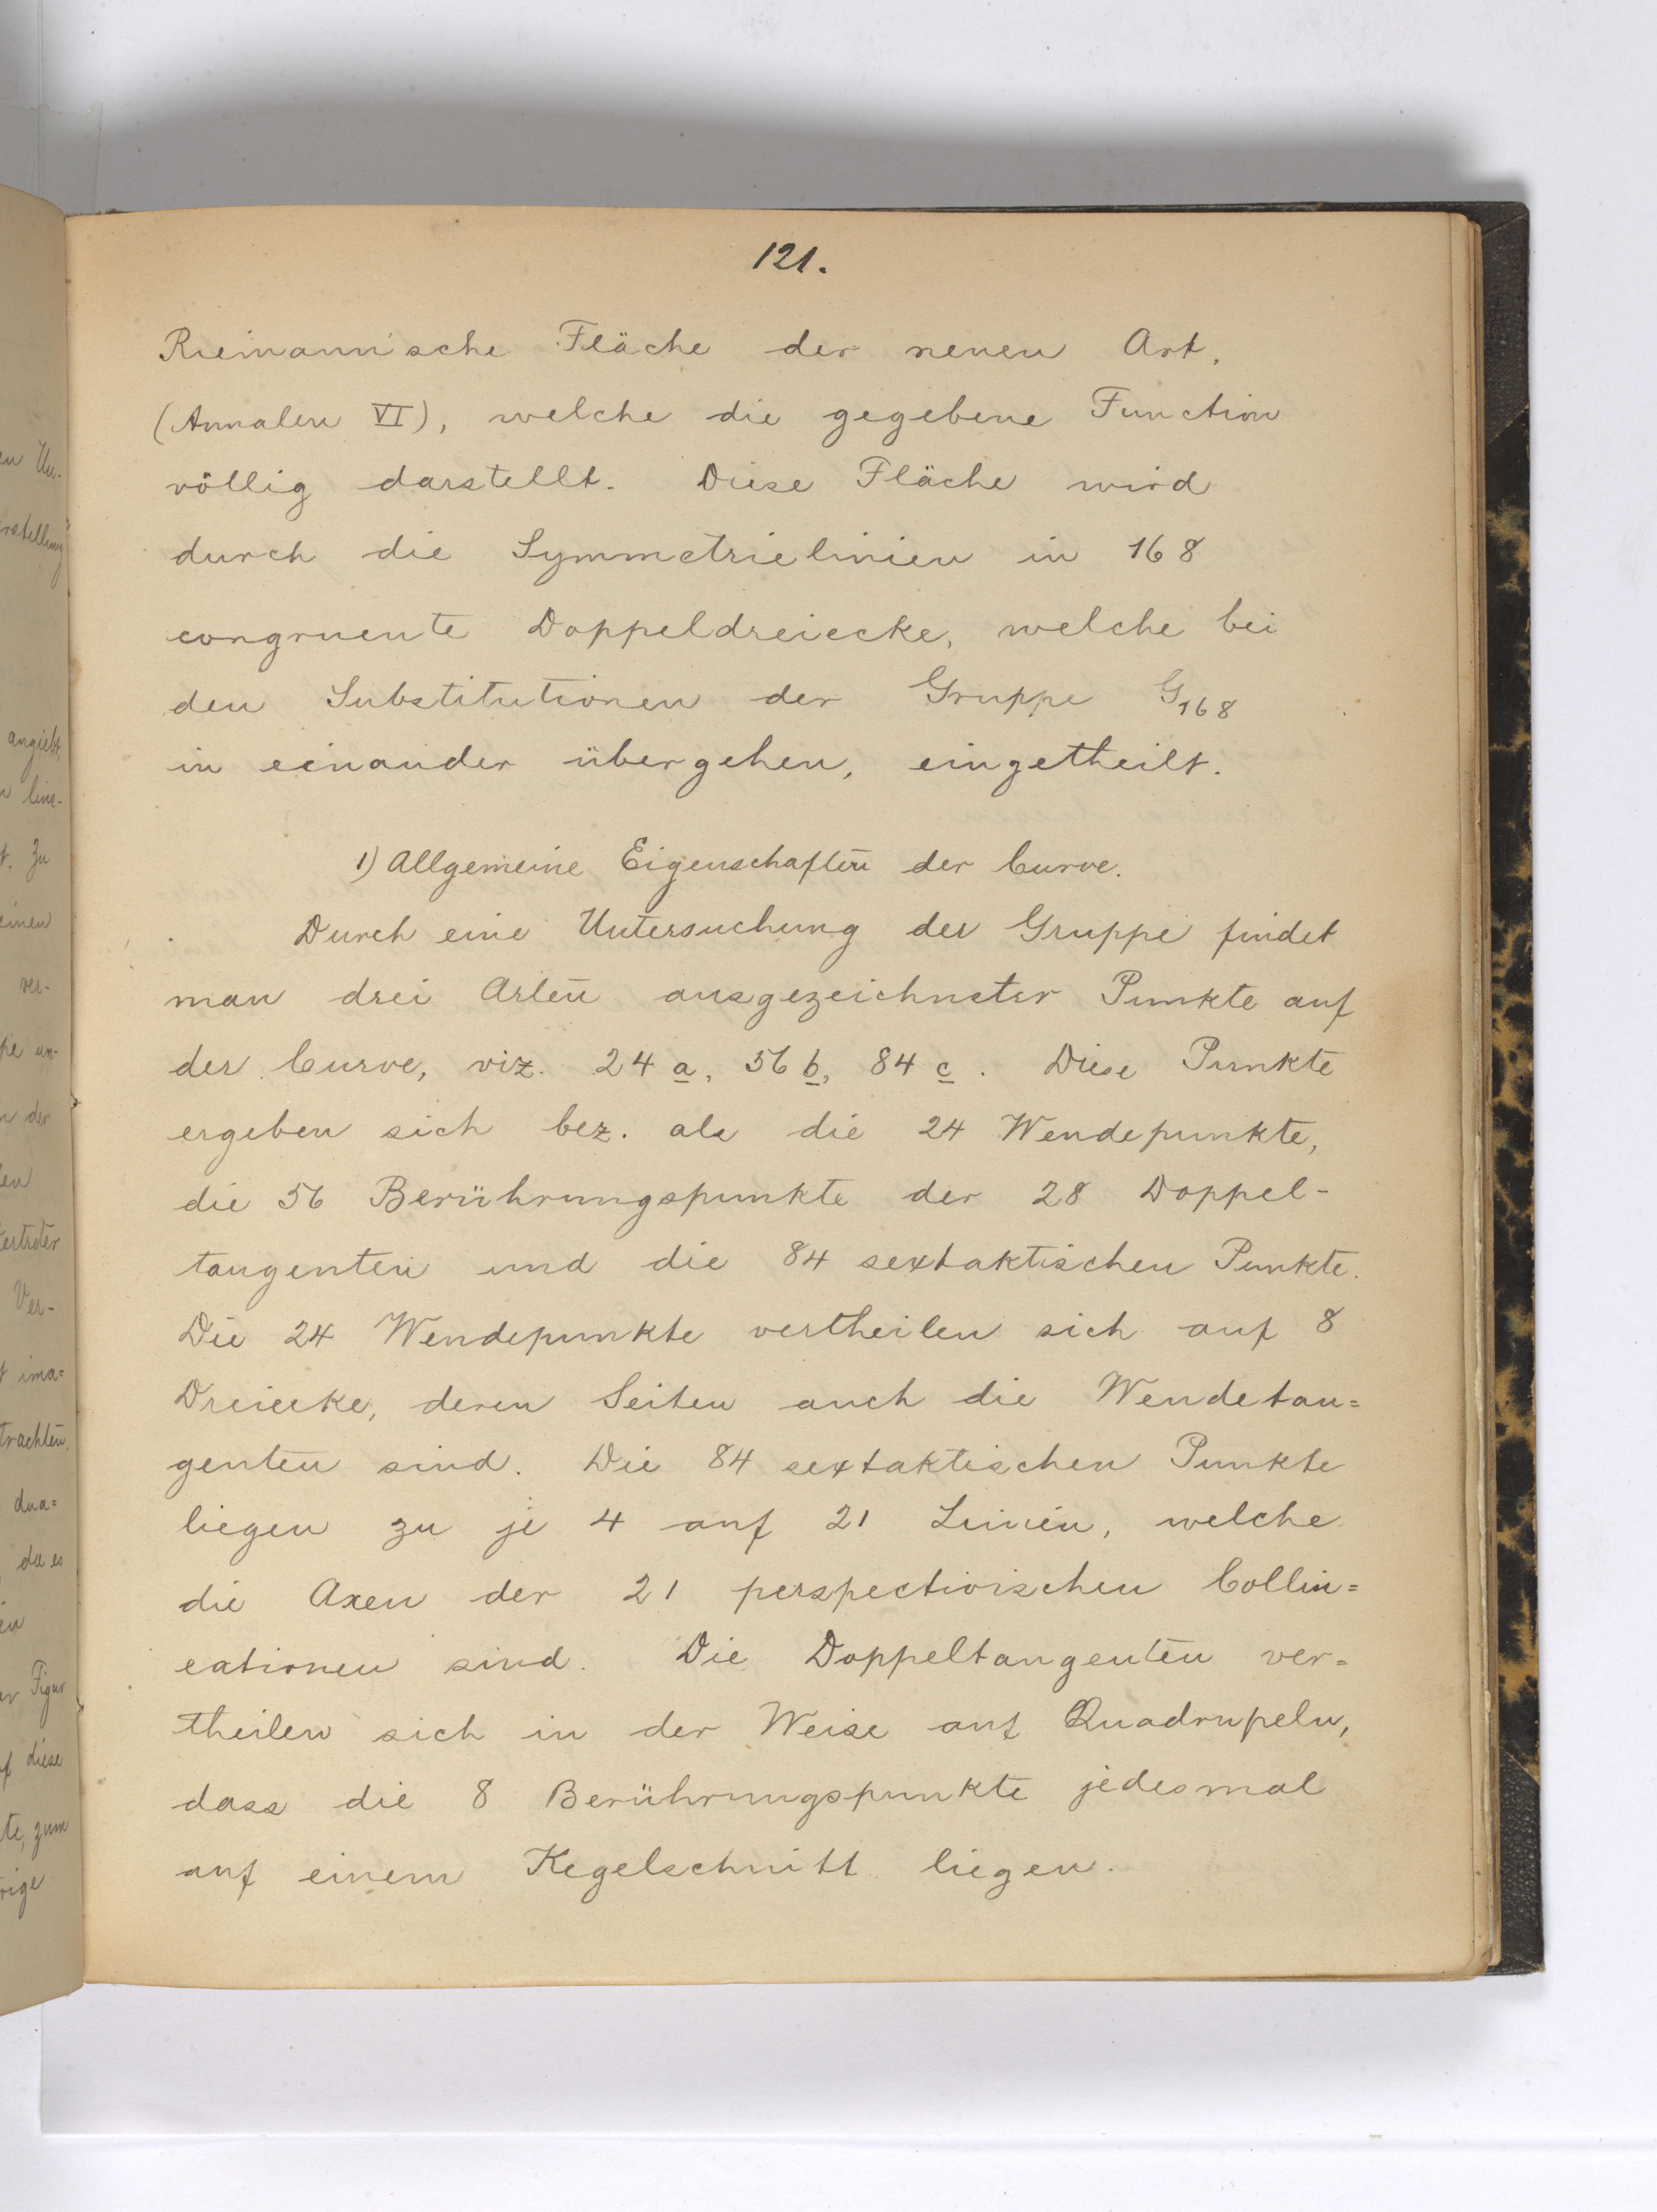 121.
Riemannische Fläche der neuen Art.
(Annalen VI), welche die gegebene Function
völlig darstellt. Diese Fläche wird
durch die Symmetrielinien in 168
congruente Doppeldreiecke, welche bei
den Substitutionen der Gruppe G₁₆₈
in einander übergehen, eingetheilt.
1) Allgemeine Eigenschaften der Curve.
Durch eine Untersuchung der Gruppe findet
man drei Arten ausgezeichneter Punkte auf
der Curve, viz. 24 a, 56 b, 84 c. Diese Punkte
ergeben sich bez. als die 24 Wendepunkte,
die 56 Berührungspunkte der 28 Doppel-
tangenten und die 84 sextaktischen Punkte.
Die 24 Wendepunkte vertheilen sich auf 8
Dreiecke, deren Seiten auch die Wendetan=
genten sind. Die 84 sextaktischen Punkte
liegen zu je 4 auf 21 Linien, welche
die Axen der 21 perspectivischen Collin=
eationen sind. Die Doppeltangenten ver=
theilen sich in der Weise auf Quadrupeln,
dass die 8 Berührungspunkte jedesmal
auf einem Kegelschnitt liegen.